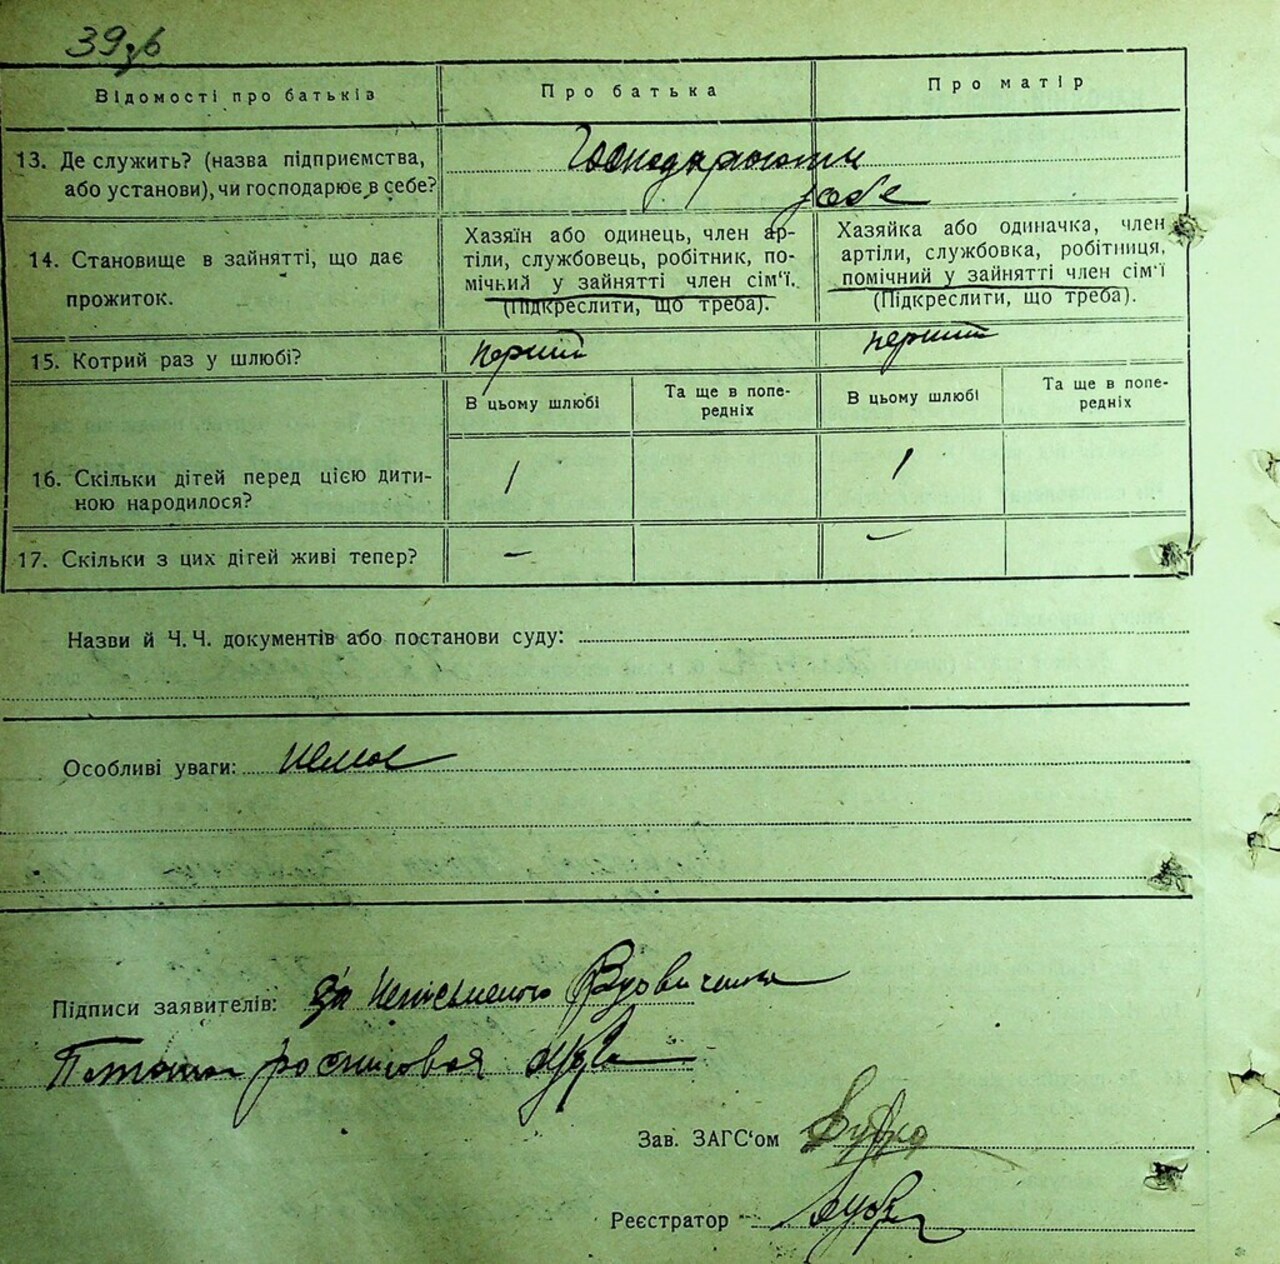 39зв
Відомості про батьків
Про батька
Про матір
13. Де служить? (назва підприємства,
або установи), чи господарює в себе?
Господарюють
у себе
14. Становище в зайнятті, що дає
прожиток.
Хазяїн або одинець, член ар-
тіли, службовець, робітник, по-
мічний у зайнятті член сім‘ї.
(Підкреслити, що треба).
Хазяйка або одиначка, член
артіли, службовка, робітниця,
помічний у зайнятті член сім‘ї
(Підкреслити, що треба).
15. Котрий раз у шлюбі?
перший
перший
В цьому шлюбі
Та ще в попе-
редніх
В цьому шлюбі
Та ще в попе-
редніх
16. Скільки дітей перед цією дити-
ною народилося?
1
1
17. Скільки з цих дітей живі тепер?
–
–
Назви й Ч.Ч. документів або постанови суду:
Особливі уваги: немає
Підписи заявителів: За неписьменого Вдовиченка
Зав. ЗАГС‘ом
Реєстратор